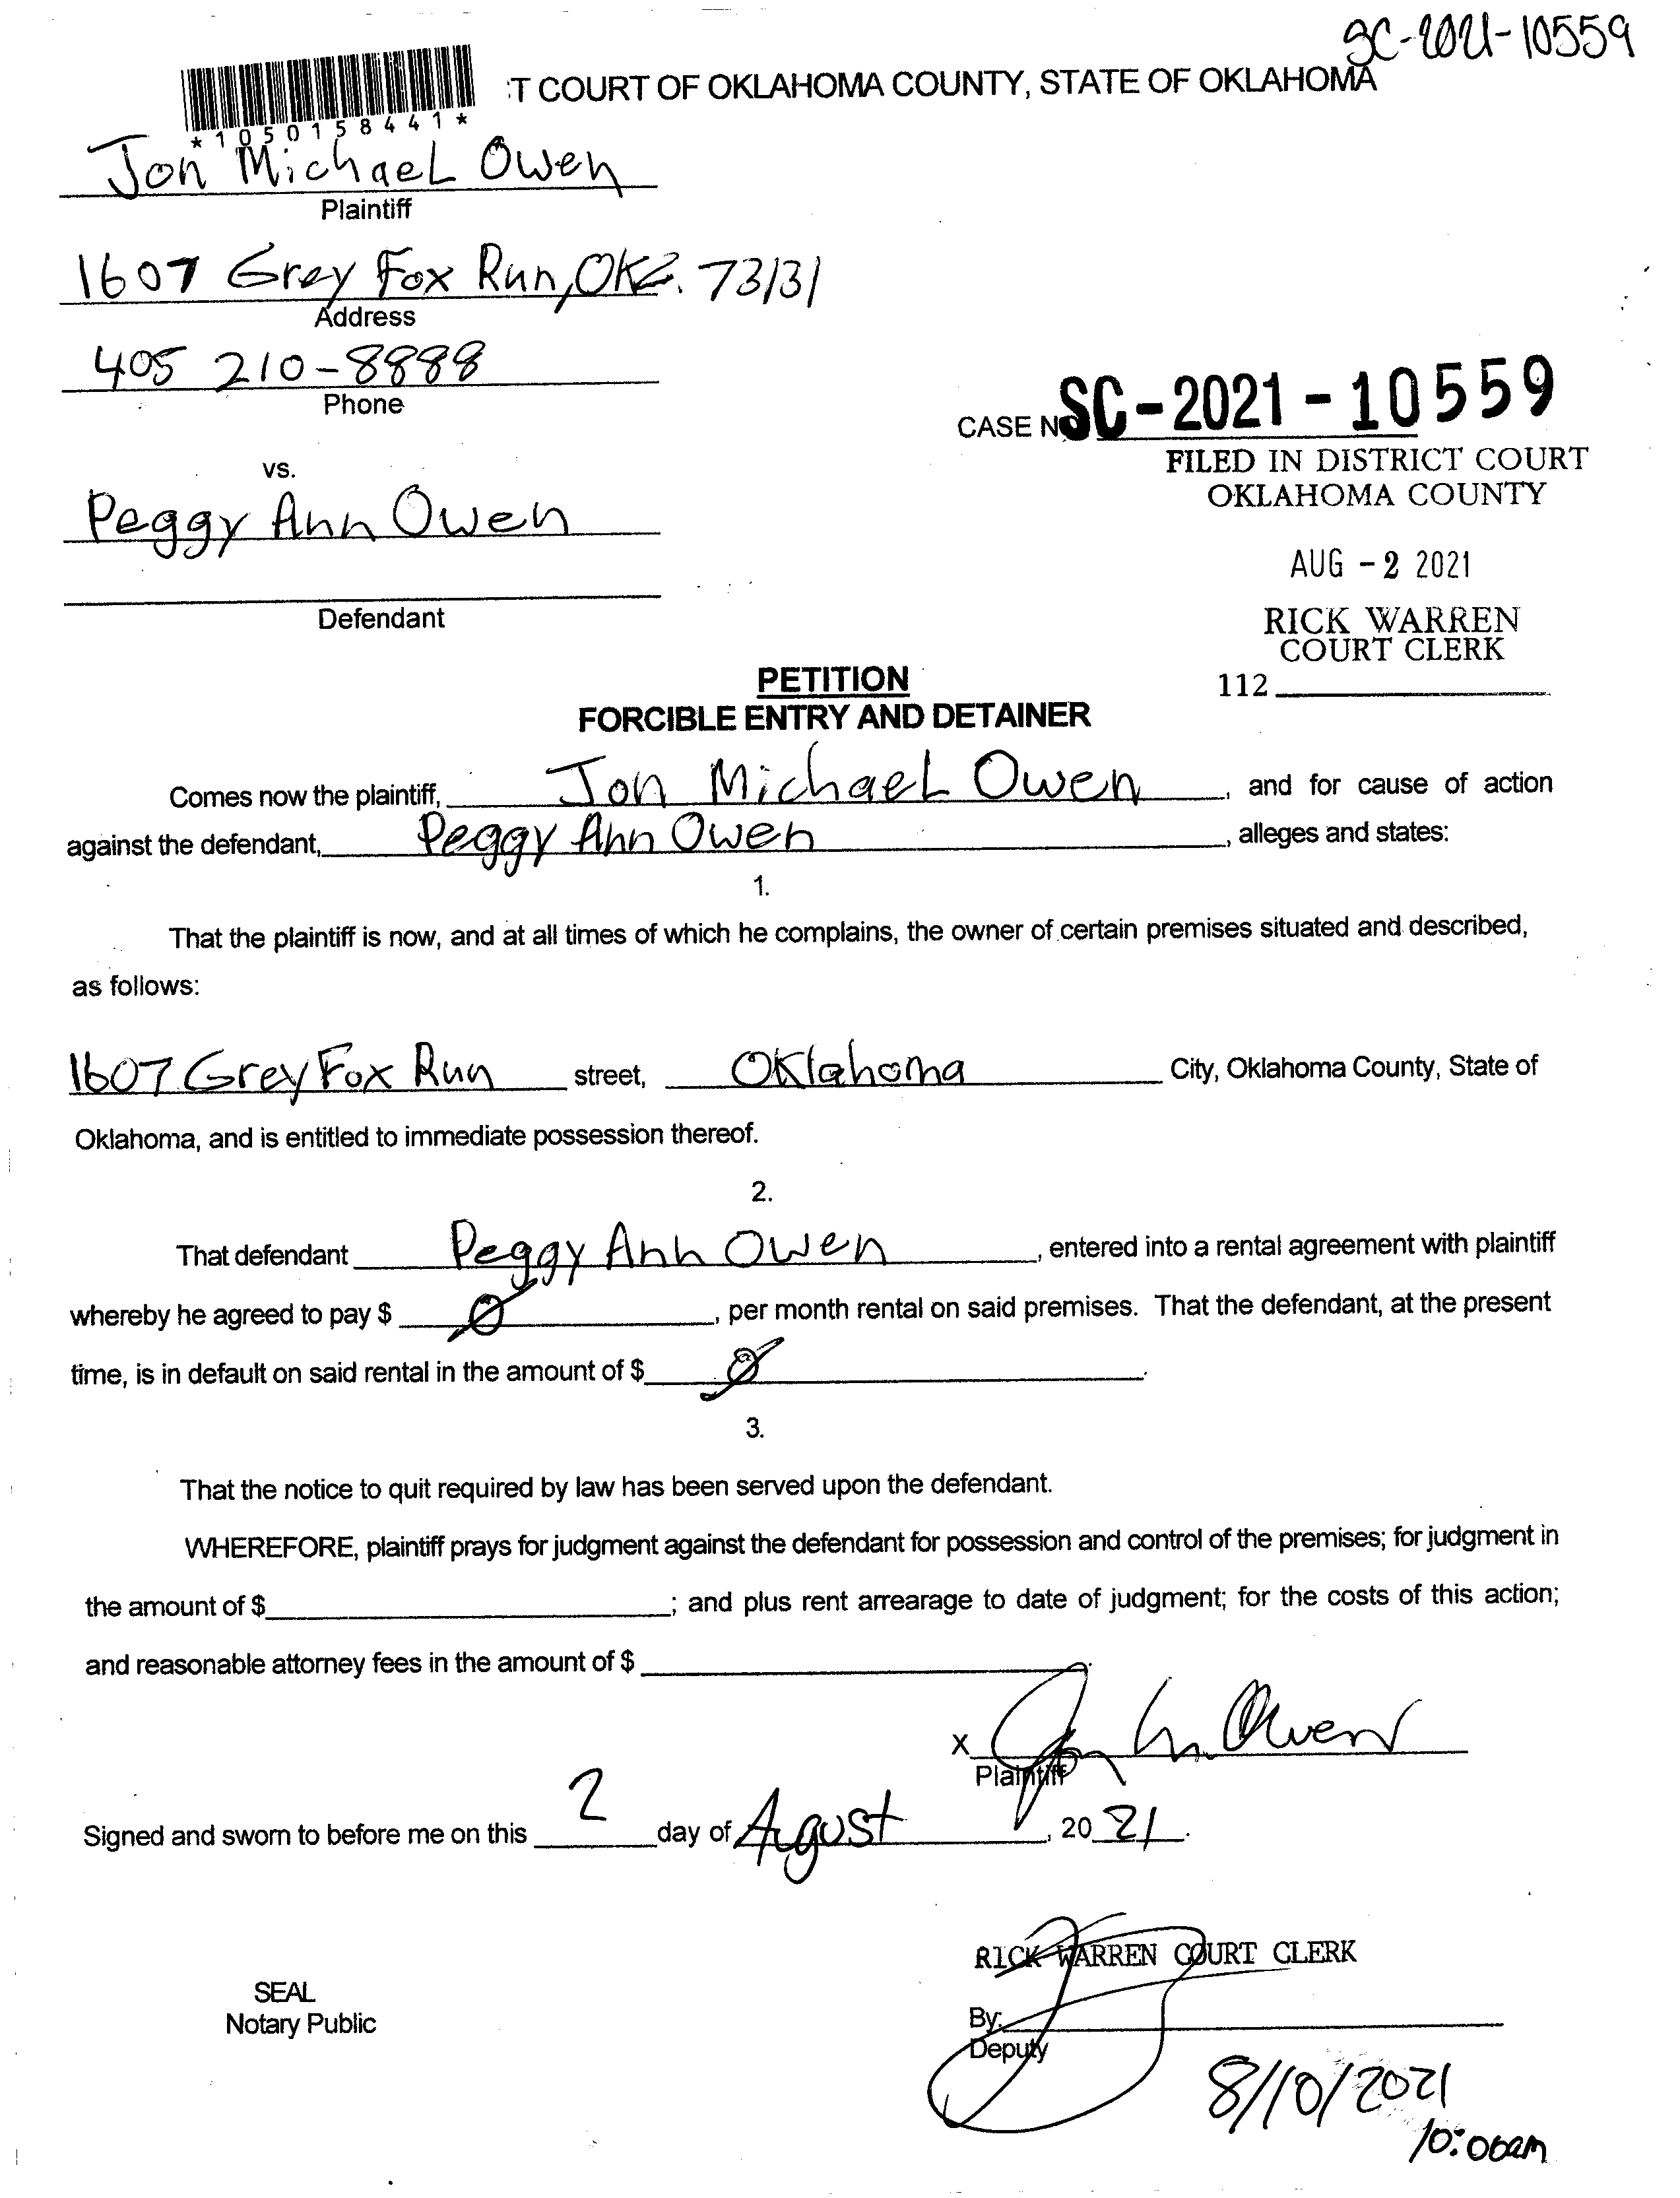 SC-2021-10559
T COURT OF OKLAHOMA COUNTY, STATE OF OKLAHOMA
*1050158441*
Jon Michael Owen
Plaintiff
1607 Grey Fox Run, OKC. 73131
Address
405 210-8888
Phone
CASE NO SC-2021-10559
FILED IN DISTRICT COURT
OKLAHOMA COUNTY
vs.
Peggy Ann Owen
AUG -2 2021
Defendant
RICK WARREN
COURT CLERK
112
PETITION
FORCIBLE ENTRY AND DETAINER
Comes now the plaintiff, Jon Michael Owen, and for cause of action
against the defendant, Peggy Ann Owen, alleges and states:
1.
That the plaintiff is now, and at all times of which he complains, the owner of certain premises situated and described,
as follows:
1607 Grey Fox Run street, Oklahoma City, Oklahoma County, State of
Oklahoma, and is entitled to immediate possession thereof.
2.
That defendant Peggy Ann Owen, entered into a rental agreement with plaintiff
whereby he agreed to pay $ 0, per month rental on said premises. That the defendant, at the present
time, is in default on said rental in the amount of $ 0.
3.
That the notice to quit required by law has been served upon the defendant.
WHEREFORE, plaintiff prays for judgment against the defendant for possession and control of the premises; for judgment in
the amount of $; and plus rent arrearage to date of judgment; for the costs of this action;
and reasonable attorney fees in the amount of $
X Jon M. Owen
Plaintiff
Signed and sworn to before me on this 2 day of Agust, 2021.
RICK WARREN COURT CLERK
SEAL
Notary Public
By:
Deputy
8/10/2021
10:00am